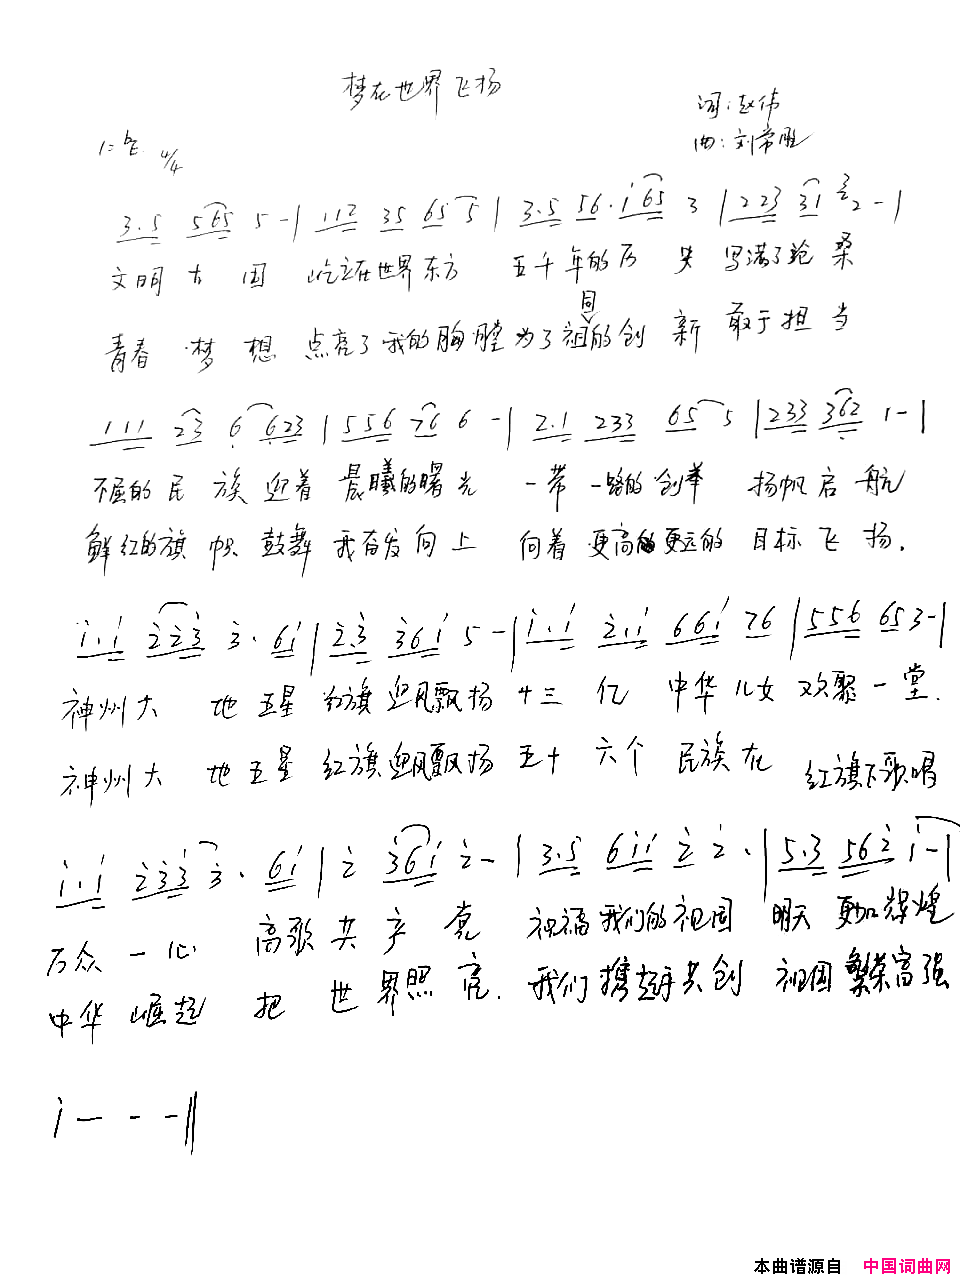 梦在世界飞扬
词:赵伟
1=♭E 4/4
曲:刘常胜
3.5 565 5 -| 112 35 65 5| 3.5 56.i 65 3 |223 31 2 -|
文明古国 屹立在世界东方 五千年的历史写满了沧桑
青春梦想点亮了我的胸膛为了祖国的创新敢于担当
111 23 6 623 | 556 76 6 -| 2.1 233 65 5 |233 362 1-|
不屈的民族迎着晨曦的曙光 一带一路的创举 扬帆启航
鲜红的旗帜鼓舞我奋发向上 向着更高的更远的目标飞扬.
i.i 223 3. 6i| 2.3 36i 5 -| i.i 2.i 66i 76 |556 653-|
神州大地五星红旗迎风飘扬十三亿中华儿女欢聚一堂.
神州大地五星红旗迎风飘扬五十六个民族在红旗下歌唱
i.i 233 3. 6i | 2 36i 2- | 3.5 6ii 2 2. | 5.3 562 i-|
万众一心 高歌共产党 祝福我们的祖国 明天更加辉煌
中华崛起 把世界照亮. 我们携起手共创祖国繁荣富强
i — - -‖
本曲谱源自 中国词曲网